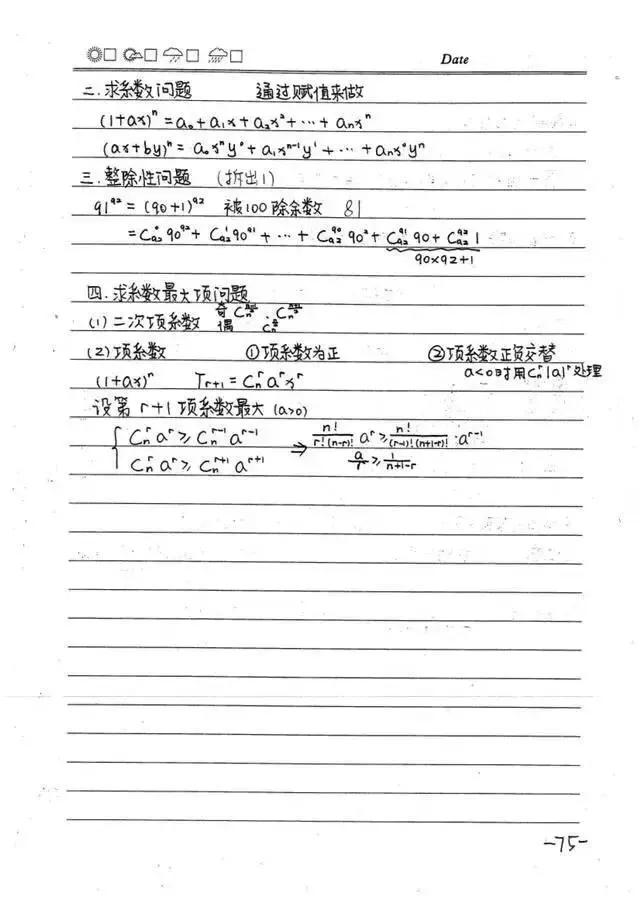 Date
二.求系数问题 通过赋值来做
(1+ax)ⁿ = a₀+a₁x+a₂x²+⋯+aₙxⁿ
(ax+by)ⁿ = a₀xⁿy⁰+a₁xⁿ⁻¹y¹+⋯+aₙx⁰yⁿ
三.整除性问题 (拆出1)
91⁹² = (90+1)⁹² 被100除余数 81
= C₉₂⁰90⁹²+C₉₂¹90⁹¹+⋯+C₉₂⁹⁰90²+C₉₂⁹¹90+C₉₂⁹²1
90×92+1
四.求系数最大项问题
(1)二次项系数 奇 偶
(2)项系数 ①项系数为正 ②项系数正负交替
a<0时用Cₙʳ|a|ʳ处理
(1+ax)ⁿ Tᵣ₊₁ = Cₙʳaʳxʳ
设第r+1项系数最大 (a>0)
{ Cₙʳaʳ ≥ Cₙʳ⁻¹aʳ⁻¹ ⇒ n!/(r!(n-r)!) aʳ ≥ n!/((r-1)!(n+1-r)!) · aʳ⁻¹
Cₙʳaʳ ≥ Cₙʳ⁺¹aʳ⁺¹ a/r ≥ 1/(n+1-r)
-75-